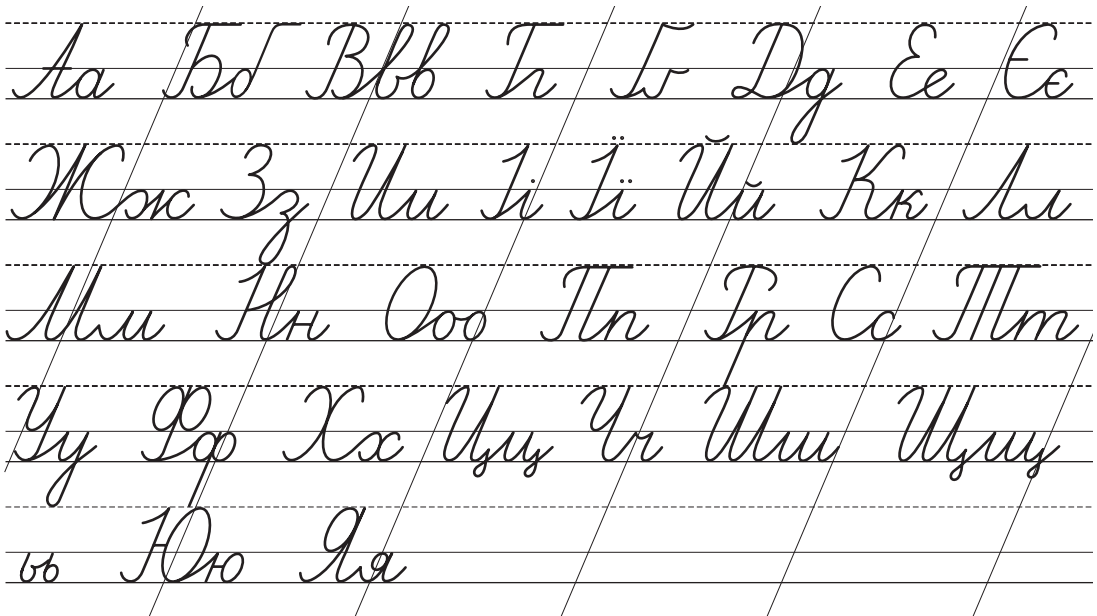 Аа Бб Ввв Гг Ґґ Дд Ее Єє
Жж Зз Ии Іі Її Йй Кк Лл
Мм Нн Ооо Пп Рр Сс Тт
Уу Фф Хх Цц Чч Шш Щщ
ьь Юю Яя